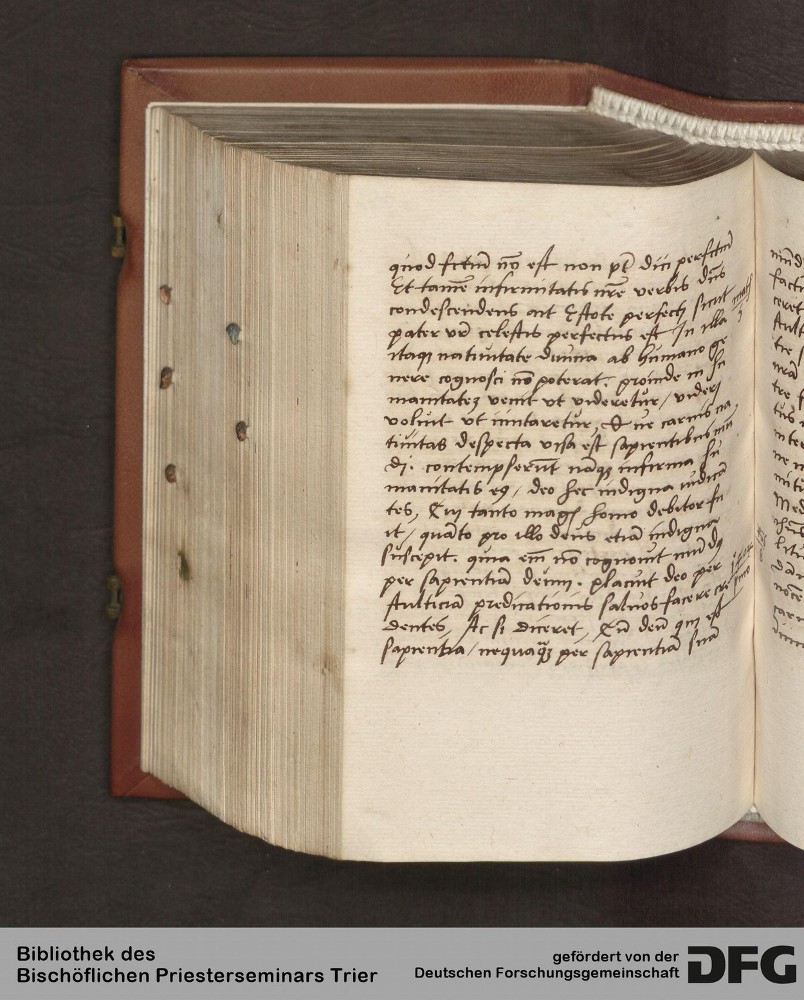 quod fctm̄ nō est non pt̄ dici perfctm̄
Et tamē infirmitatis nr̄e verbis dn̄s
condescendens ait Estote perfecti sicut
pater vr̄ celestis perfectus est In illa
itaqꝫ natiuitate diuina ab humano ge
nere cognosci nō poterat. proinde in hu
manitateꝫ venit vt videretur / videri
voluit vt imitaretur, Et ne carnis na
tiuitas despecta visa est sapientibus mū
di. contempserūt nāqꝫ infirma hu
manitatis eꝯ / deo hec indigna iudicā
tes, Cui tanto magꝭ homo debitor fu
it / quāto pro illo deus etiā indigna
suscepit. quia em̄ nō cognouit mūdꝯ
per sapientiā deum. placuit deo per
stulticiā predicationis saluos facere cre
dentes, Ac si diceret, Cū deū qui est
sapientia / nequaqꝫ per sapientiā suā
math
Bibliothek des
Bischöflichen Priesterseminars Trier
gefördert von der
Deutschen Forschungsgemeinschaft
DFG